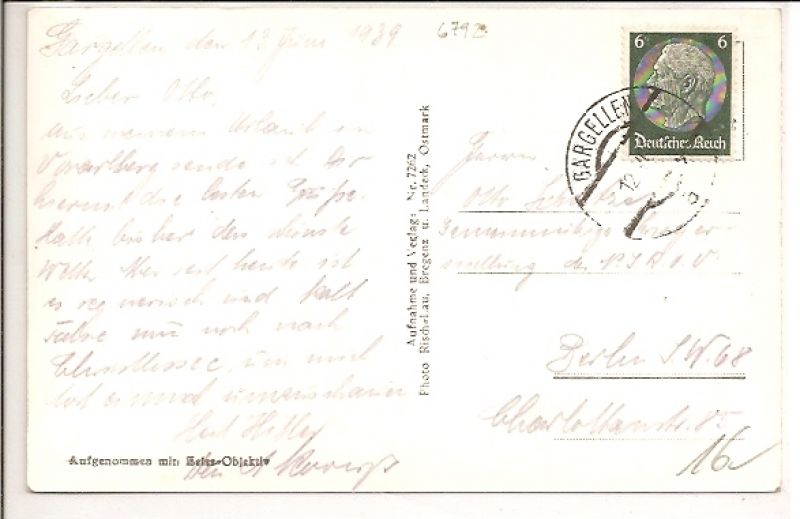 Gargellen den 12 Juni 1939
6792
Lieber Otto,
aus meinem Urlaub in
Vorarlberg sende ich Dir
hiermit die besten Grüße.
Hatte bisher das schönste
Wetter. Aber seit heute ist
es regnerisch und kalt
Fahre nun noch nach
um mich
dort einmal umzuschauen
Heil Hitler
Dein A
Aufgenommen mit: Zeiss-Objektiv
Aufnahme und Verlag: Nr. 7262
Photo Risch-Lau, Bregenz u. Landeck, Ostmark
6 6
Deutsches Reich
GARGELLEN
12.
Herrn
Otto
der N.S.K.O.V.
Berlin S.W. 68
Charlottenstr. 85
16